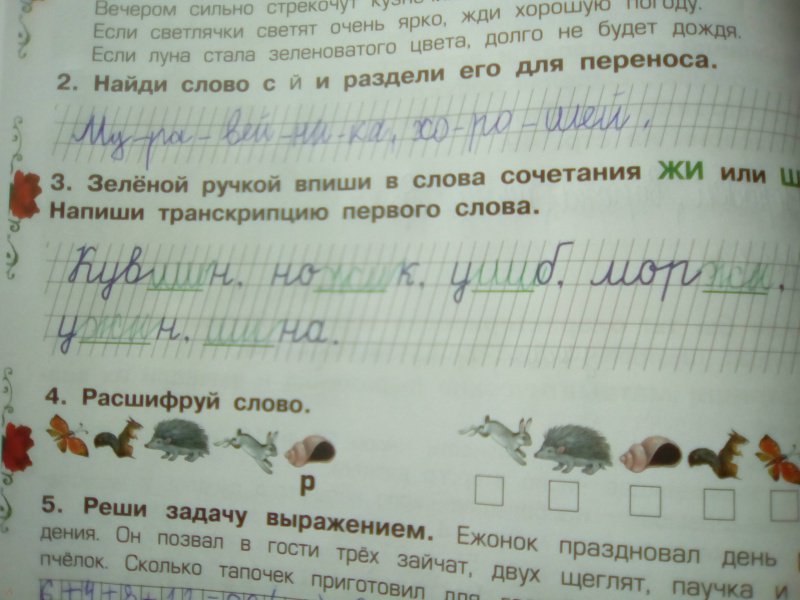 Вечером сильно стрекочут
Если светлячки светят очень ярко, жди хорошую погоду.
Если луна стала зеленоватого цвета, долго не будет дождя.
2. Найди слово с й и раздели его для переноса.
Му-ра-вей-ни-ка, хо-ро-шей.
3. Зелёной ручкой впиши в слова сочетания ЖИ или
Напиши транскрипцию первого слова.
Кувшин, ножик, ушиб, моржи,
ужин, шина.
4. Расшифруй слово.
р
5. Реши задачу выражением. Ежонок праздновал день
дения. Он позвал в гости трёх зайчат, двух щеглят, паучка и
пчёлок. Сколько тапочек приготовил для
6+4+8+12